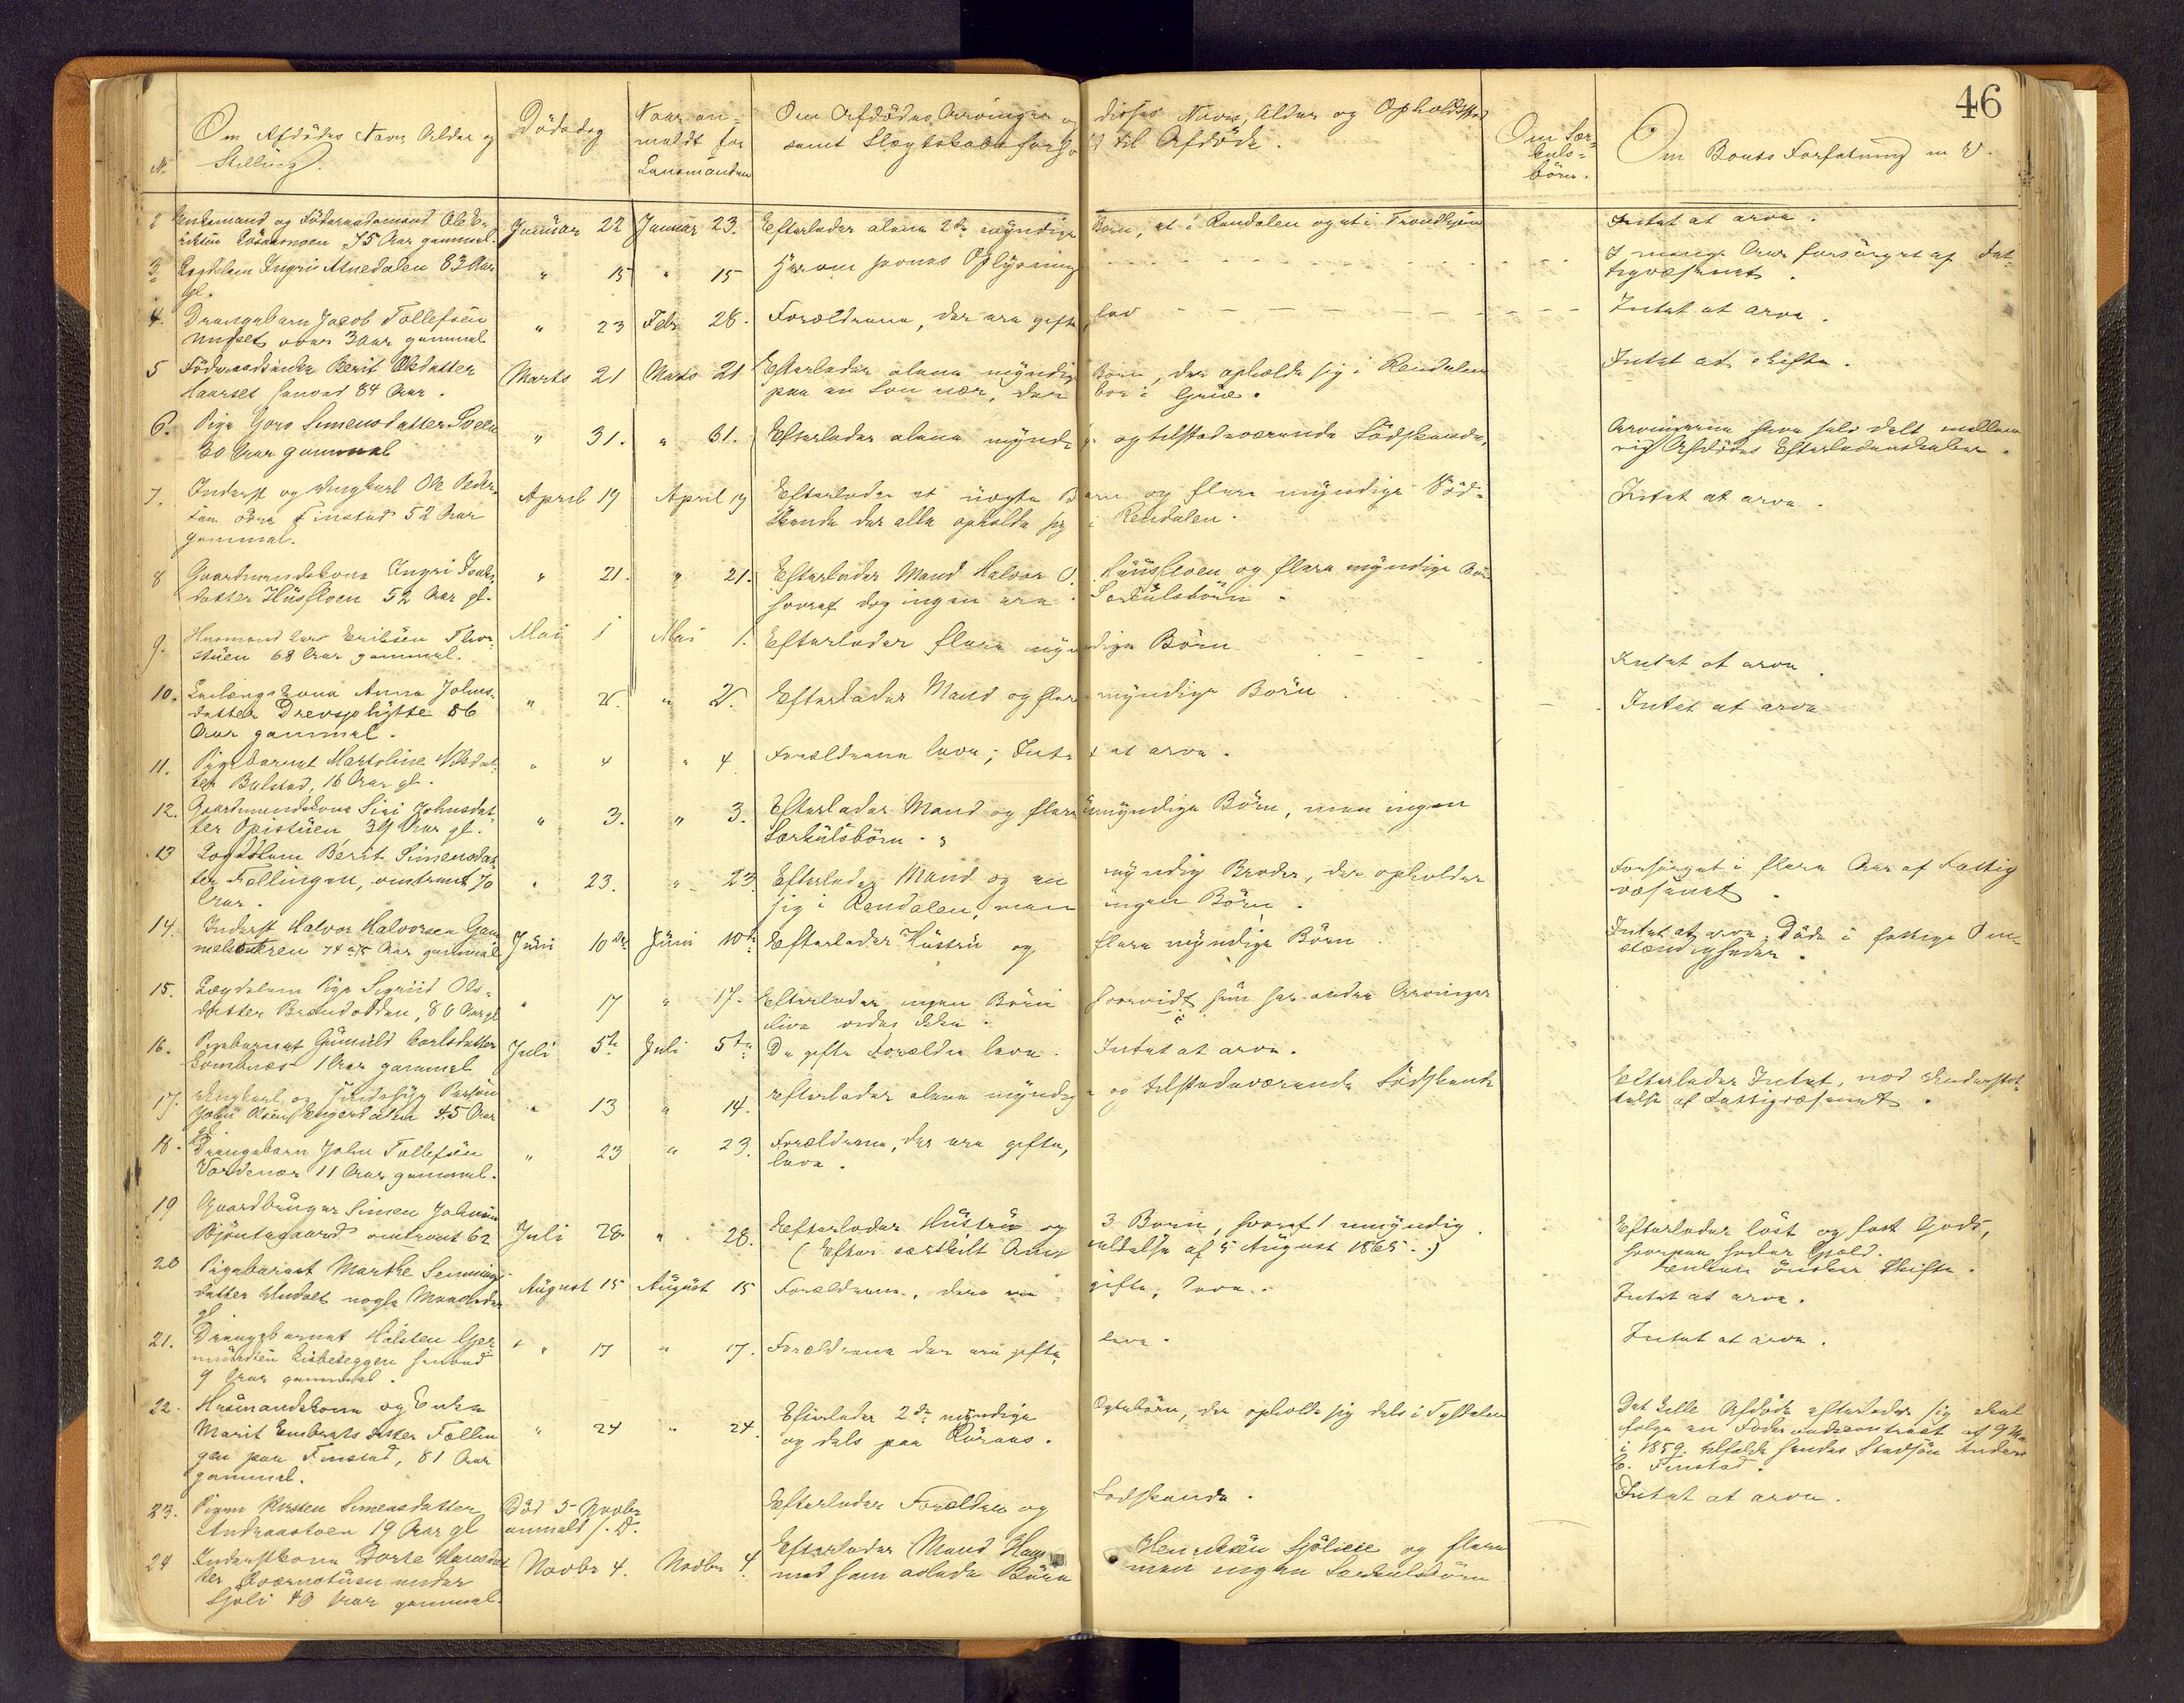 46
No.
Om Afdödes Navn Alder og
Stilling.
Dödsdag
Naar an-
meldt for
Lensmanden
Om Afdödes Arvinger og disses Navn, Alder og Opholdssted
samt Slægtskabsforhold til Afdöde.
Om Sær-
kuls-
börn.
Om Boets Forfatning m. V.
2 Enkemand og Föderaadsmand Ole E-
riksen 75 Aar gammel.
Januar 22 Januar 23.
Efterlader alene 2de myndige Børn, et i Rendalen og et i Trondhjem
Intet at arve.
3 Lægdslem Ingri Misedalen 83 Aar
gl.
" 15 " 15
Herom savnes Oplysning
I mange Aar forsörget af Fat-
tigvæsenet.
4. Drengebarn Jacob Tollefsen
3 Aar gammel
" 23 Febr 28.
Forældrene, der ere gifte, leve
Intet at arve.
5 Föderaadsenke Berit Olsdatter
Haarset henved 84 Aar.
Marts 21 Marts 21
Efterlader alene myndige Børn, der opholde sig i Rendalen
paa en Søn nær, der bor i Grue.
Intet at skifte.
6. Pige Goro Simensdatter Sveen
20 Aar gammel
" 31. " 31.
Efterlader alene myndige og tilstedeværende Södskende.
Arvingerne have selv delt mellem
sig Afdödes Efterladenskaber.
7. Inderst og Ungkarl Ole Peder-
sen Finstad 52 Aar
gammel.
April 19 April 19
Efterlader et uægte Barn og flere myndige Söd-
skende der alle opholde sig i Rendalen.
Intet at arve.
8 Gaardmandskone Ingri
datter Husfloen 52 Aar gl.
" 21. " 21.
Efterlader Mand Halvor O. Husfloen og flere myndige Børn
hvoraf dog ingen ere Særkulsbörn.
9. Husmand Lars Eriksen Thor-
stuen 68 Aar gammel.
Mai 1 Mai 1.
Efterlader flere myndige Börn
Intet at arve
10. Anna Johns-
datter Drevsjohytte 86
Aar gammel.
" 2. " 2.
Efterlader Mand og flere myndige Börn
Intet at arve
11. Pigebarnet Martoline Olsdat-
ter Bulstad, 16 Aar gl.
" 4 " 4
Forældrene leve; Intet at arve.
12. Gaardmandskone Siri Johnsdat-
ter Opistuen 39 Aar gl.
" 3. " 3.
Efterlader Mand og flere umyndige Börn, men ingen
Særkulsbörn.
13 Lægdslem Berit Simensdat-
ter Fællingen, omtrent 70
Aar.
" 23. " 23
Efterlader Mand og en myndig Broder, der opholder
sig i Rendalen, men ingen Börn.
Forsörget i flere Aar af Fattig
væsenet.
14. Inderst Halvor Halvorsen Gam-
melsætren 74 a 75 Aar gammel
Juni 10de Juni 10de
Efterlader Hustru og flere myndige Börn.
Intet at arve. Döde i fattige Om-
stændigheder.
15. Lægdslem Pige Sigrid Ols-
datter Brændodden, 80 Aar gl
" 17 " 17.
Efterlader ingen Börn hvorvidt hun har andre Arvinger
i live vides ikke.
16. Pigebarnet Gunild Carlsdatter
Lombnæs 1 Aar gammel
Juli 5te Juli 5te
De gifte Forældre leve. Intet at arve.
17. Ungkarl og Sindssyg Person
John Olsen Engerdalen 45 Aar
gl.
" 13 " 14.
Efterlader alene myndige og tilstedeværende Södskende
Efterlader Intet, nød Understøt-
telse af Fattigvæsenet.
18. Drengebarn John Tollefsen
11 Aar gammel.
" 23 " 23.
Forældrene, der ere gifte,
leve.
19 Gaardbruger Simen Johnsen
Bjöntegaard omtrent 62
Juli 28. " 28.
Efterlader Hustru og 3 Børn, hvoraf 1 umyndig.
(Efter særskilt Anmeldelse af 5 August 1865.)
Efterlader löst og fast Gods,
hvorpaa hviler Gjæld.
Enken önsker Skifte.
20 Pigebarnet Marthe
datter Undset nogle Maaneder
gl.
August 15 August 15
Forældrene, der ere gifte, leve.
Intet at arve.
21. Drengebarnet Halsten
henved
9 Aar gammel.
" 17 " 17.
Forældrene der ere gifte, leve.
Intet at arve.
22. Husmandskone og Enke
Marit Embretsdatter Fællin
gen paa Finstad, 81 Aar
gammel.
" 24 " 24.
Efterlader 2de myndige Ægtebörn, der opholde sig dels i Tyldalen
og dels paa Röraas.
Det Lille Afdöde efterlader sig skal
følge en Föderaadscontract af 9 Mai
i 1859 tilfalde hendes Stedsön Anders
E. Finstad.
23. Pigen Kirsten Simensdatter
19 Aar gl
Död 5 Novbr
anmeldt s. D.
Efterlader Forældre og Södskende.
Intet at arve.
24 Inderstkone Dorte Hansdat
ter Kværnstuen under
Sjöli 40 Aar gammel.
Novbr 4. Novbr 4.
Efterlader Mand Hans Henriksen Sjölien og flere
med ham avlede Börn men ingen Særkulsbörn